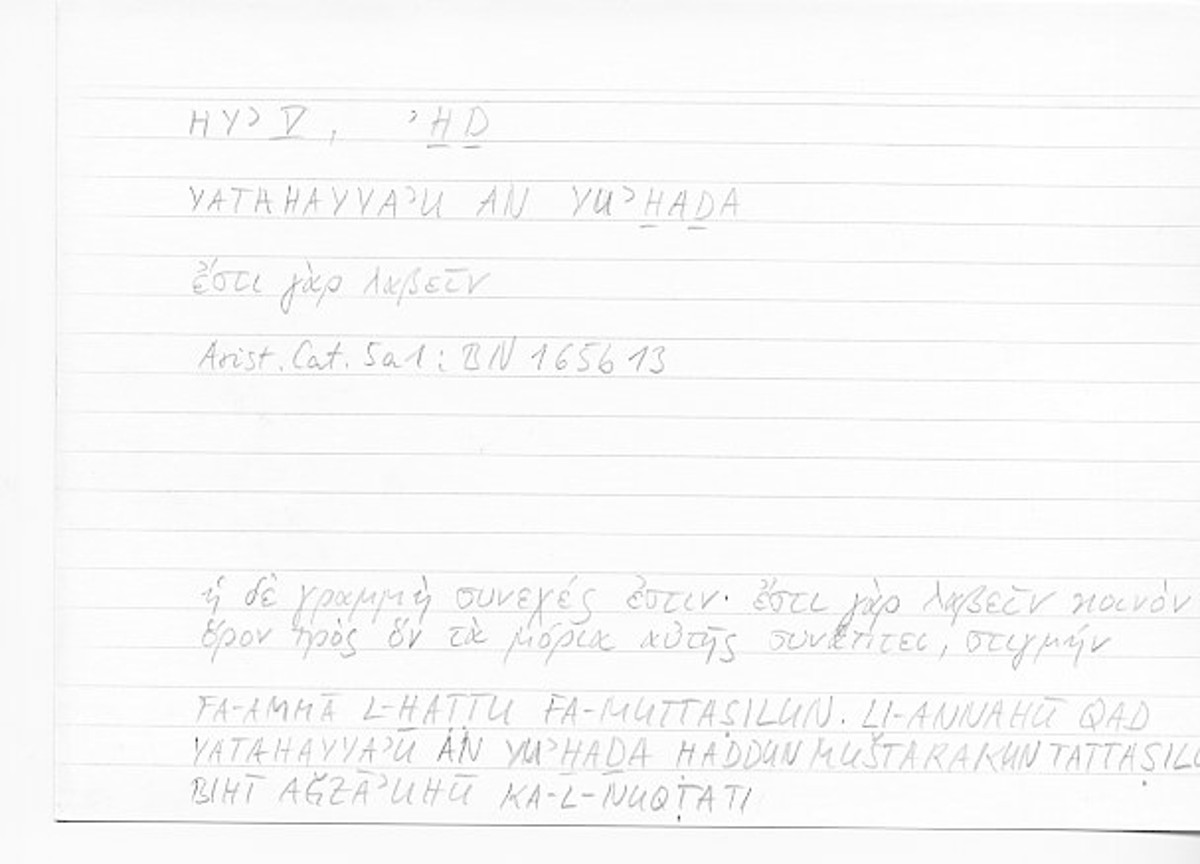 HYʾ V̲, ʾH̲D̲
YATAHAYYAʾU AN YUʾH̲AD̲A
ἔστι γὰρ λαβεῖν
Arist. Cat. 5a1: BN 165b13
ἡ δὲ γραμμὴ συνεχές ἐστιν· ἔστι γὰρ λαβεῖν κοινὸν
ὅρον πρὸς ὃν τὰ μόρια αὐτῆς συνάπτει, στιγμήν
FA-AMMĀ L-H̲AṬṬU FA-MUTTAṢILUN. LI-ANNAHŪ QAD
YATAHAYYAʾU AN YUʾH̲AD̲A ḤADDUN MUŠTARAKUN TATTAṢILU
BIHĪ AǦZĀʾUHŪ KA-L-NUQṬATI